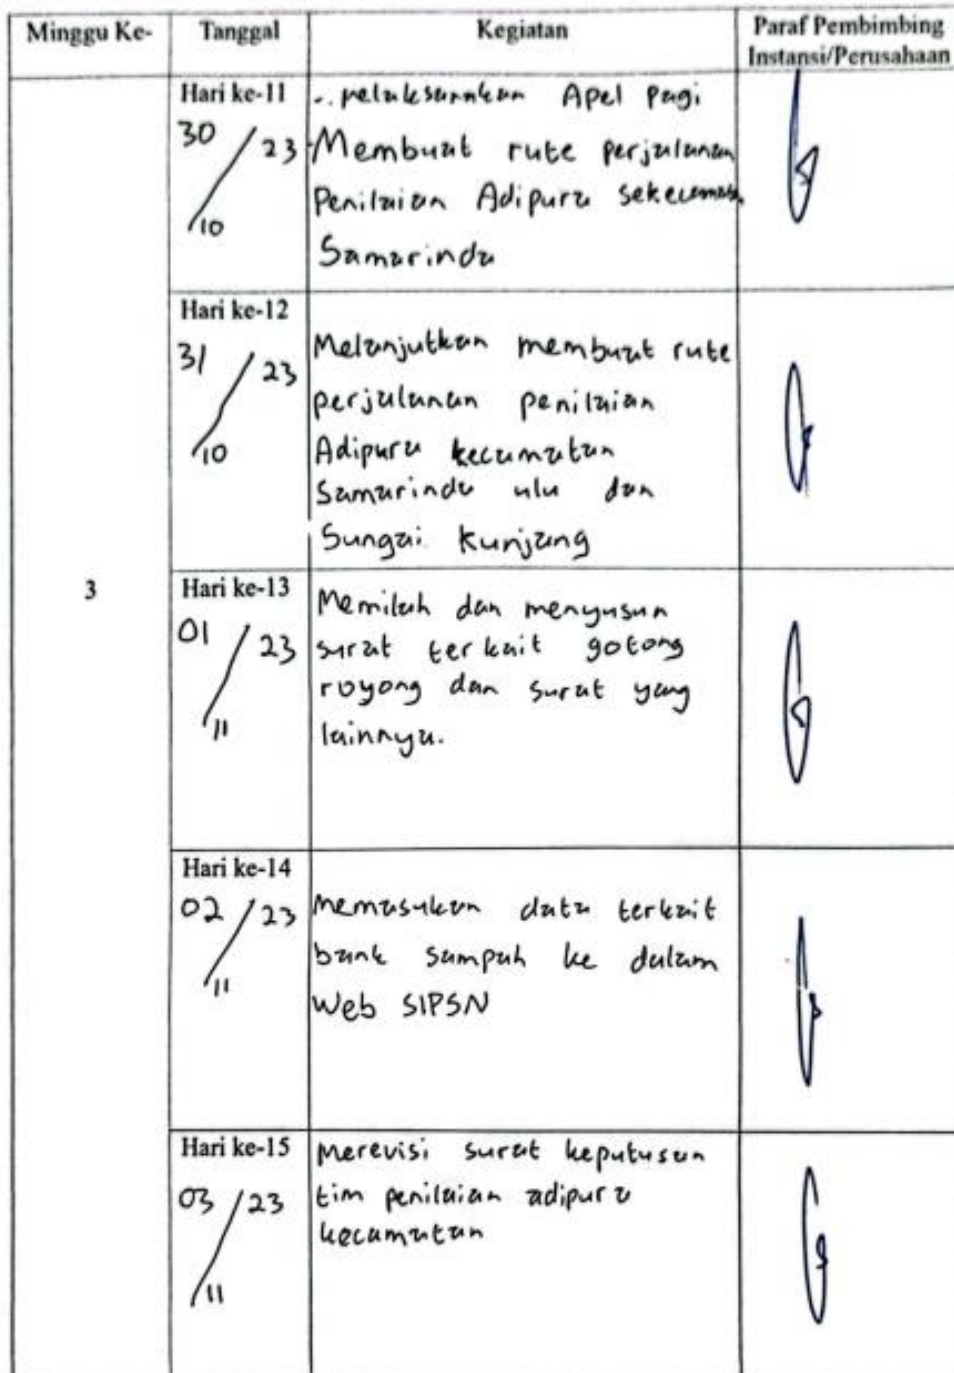 Minggu Ke- Tanggal Kegiatan Paraf Pembimbing
Instansi/Perusahaan
3
Hari ke-11
30/10 23
- pelaksanakan Apel pagi
Membuat rute perjalanan
Penilaian Adipura sekecamatan
Samarinda
Hari ke-12
31/10 23
Melanjutkan membuat rute
perjalanan penilaian
Adipura kecamatan
Samarinda ulu dan
Sungai Kunjang
Hari ke-13
01/11 23
Memilah dan menyusun
surat terkait gotong
royong dan surat yang
lainnya.
Hari ke-14
02/11 23
Memasukan data terkait
bank sampah ke dalam
Web SIPSN
Hari ke-15
03/11 23
Merevisi surat keputusan
tim penilaian adipura
kecamatan